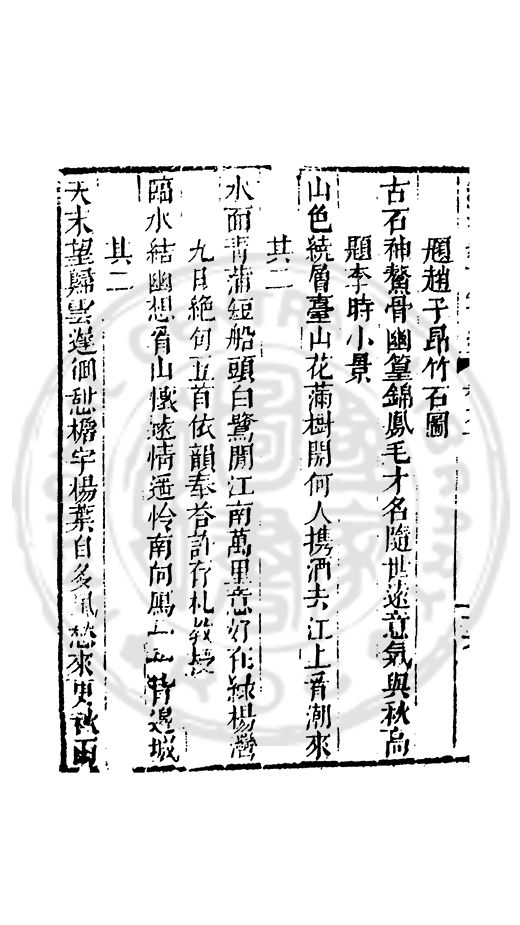 題趙子昂竹石圖
古石神鰲骨幽篁錦鳳毛才名隨世遠意氣與秋高
題李時小景
山色繞層臺山花滿樹開何人携酒去江上看潮來
其二
水面青蒲短船頭白鷺閒江南萬里意好在綠楊灣
九日絶句五首依韻奉荅許存札教授
臨水結幽想看山愜遠情遥怜南向鴈背邊城
其二
天末望歸雲遲徊憩檐宇楊葉自多風愁來更秋雨